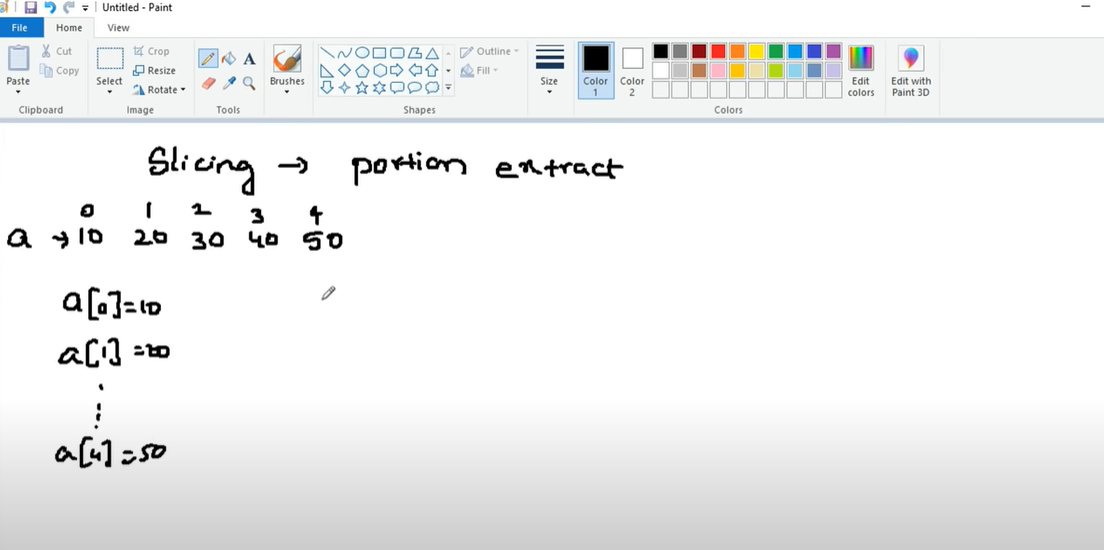 Untitled - Paint
File Home View
Paste Cut Copy Clipboard
Select Crop Resize Rotate Image
Tools
Brushes
Outline Fill Shapes
Size
Color 1 Color 2 Edit colors Colors
Edit with Paint 3D
Slicing → portion extract
0 1 2 3 4
a → 10 20 30 40 50
a[0]=10
a[1]=20
a[4]=50